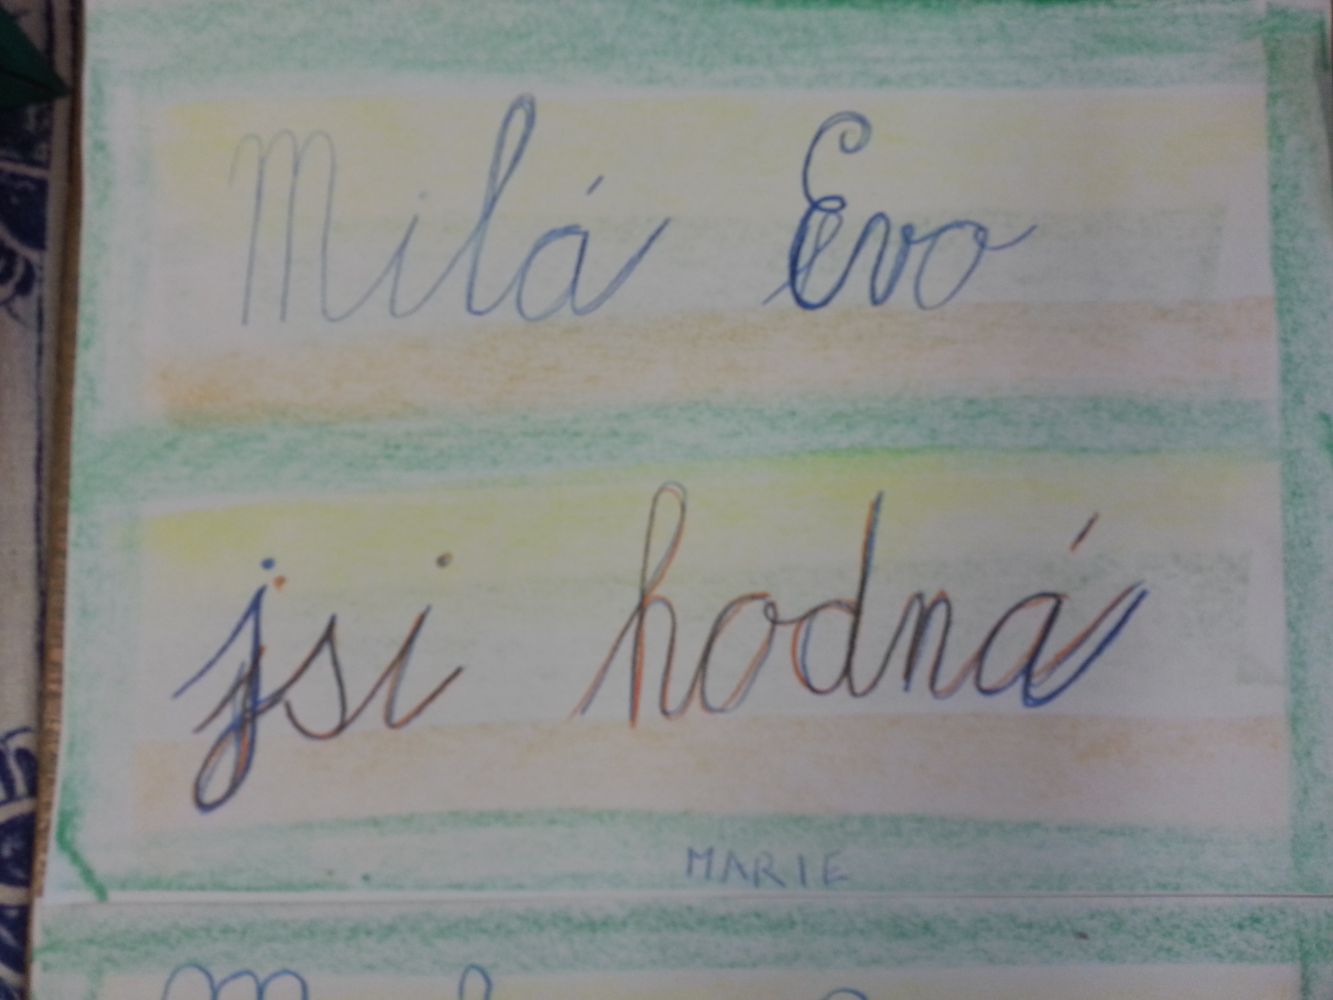 Milá Evo
jsi hodná
MARIE